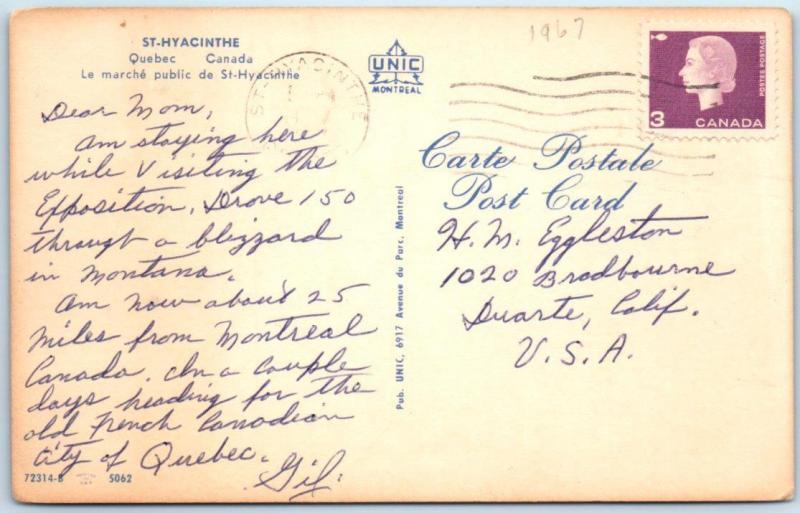 ST-HYACINTHE
Quebec Canada
Le marché public de St-Hyacinthe
Dear Mom,
Am staying here
while visiting the
Exposition. Drove 150
through a blizzard
in Montana.
Am now about 25
miles from Montreal
Canada. In a couple
days heading for the
old French Canadian
city of Quebec.
Gil.
72314-B 5062
ST-HYACINTHE
UNIC
MONTREAL
Pub. UNIC, 6917 Avenue du Parc, Montreal
1967
POSTES POSTAGE
3 CANADA
Carte Postale
Post Card
H. M. Eggleston
1020 Bradbourne
Duarte, Calif.
U.S.A.